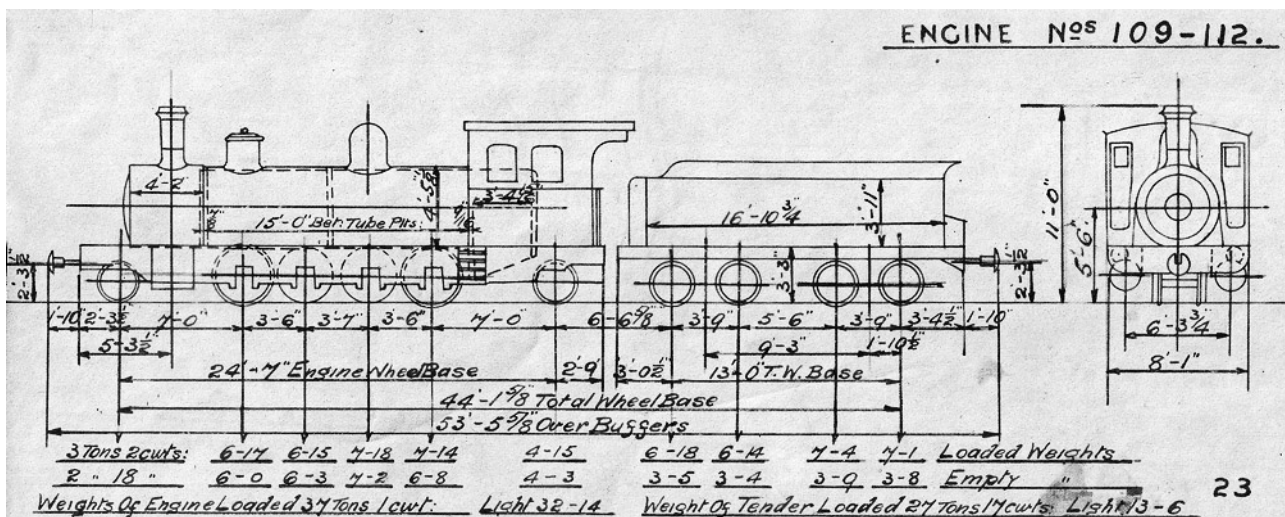 ENGINE Nos 109-112.
4'-2"
3'-4½"
4'-5⅝"
15'-0" Bet: Tube Plts:
16'-10¾"
3'-11"
11'-0"
5'-6"
2'-3½"
3'-3"
2'-3½"
1'-10" 2'-3½" 7'-0" 3'-6" 3'-7" 3'-6" 7'-0" 6'-6⅝" 3'-9" 5'-6" 3'-9" 3'-4½" 1'-10"
5'-3½"
9'-3" 1'-10½"
6'-3¾"
8'-1"
24'-7" Engine Wheel Base 2'-9" 3'-0½" 13'-0" T.W. Base
44'-1⅝" Total Wheel Base
53'-5⅞" Over Buggers
3 Tons 2cwts: 6-17 6-15 7-18 7-14 4-15 6-18 6-14 7-4 7-1 Loaded Weights
2 " 18 " 6-0 6-3 7-2 6-8 4-3 3-5 3-4 3-9 3-8 Empty "
23
Weights Of Engine Loaded 37 Tons 1 cwt: Light 32-14 Weight Of Tender Loaded 27 Tons 17 cwts: Light 13-6